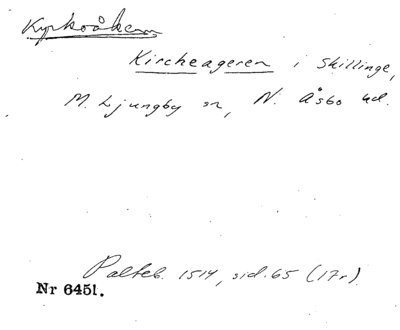 Kyrkoåkern
Kircheageren i Skillinge,
M. Ljungby sn, N. Åsbo hd.
Palteb. 1514, sid. 65 (17r).
Nr 6451.